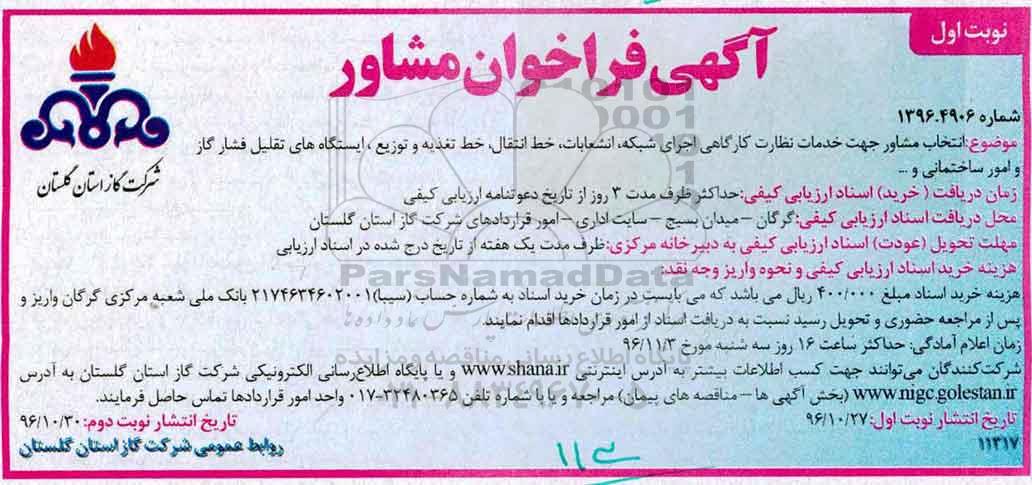 نوبت اول
آگهی فراخوان مشاور
شرکت گاز استان گلستان
شماره ۱۳۹۶.۴۹۰۶
موضوع:انتخاب مشاور جهت خدمات نظارت کارگاهی اجرای شبکه، انشعابات، خط انتقال، خط تغذیه و توزیع ، ایستگاه های تقلیل فشار گاز
و امور ساختمانی و ...
زمان دریافت ( خرید) اسناد ارزیابی کیفی:حداکثر ظرف مدت ۳ روز از تاریخ دعوتنامه ارزیابی کیفی
محل دریافت اسناد ارزیابی کیفی:گرگان –میدان بسیج –سایت اداری –امور قراردادهای شرکت گاز استان گلستان
مهلت تحویل (عودت) اسناد ارزیابی کیفی به دبیرخانه مرکزی:ظرف مدت یک هفته از تاریخ درج شده در اسناد ارزیابی
هزینه خرید اسناد ارزیابی کیفی و نحوه واریز وجه نقد:
هزینه خرید اسناد مبلغ ۴۰۰/۰۰۰ ریال می باشد که می بایست در زمان خرید اسناد به شماره حساب (سیبا)۲۱۷۴۶۳۴۶۰۲۰۰۱ بانک ملی شعبه مرکزی گرگان واریز و
پس از مراجعه حضوری و تحویل رسید نسبت به دریافت اسناد از امور قراردادها اقدام نمایند.
زمان اعلام آمادگی: حداکثر ساعت ۱۶ روز سه شنبه مورخ ۹۶/۱۱/۳
شرکت‌کنندگان می‌توانند جهت کسب اطلاعات بیشتر به آدرس اینترنتی www.shana.ir و یا پایگاه اطلاع‌رسانی الکترونیکی شرکت گاز استان گلستان به آدرس
www.nigc.golestan.ir (بخش آگهی ها–مناقصه های پیمان) مراجعه و یا با شماره تلفن ۳۲۴۸۰۳۶۵-۰۱۷ واحد امور قراردادها تماس حاصل فرمایند.
تاریخ انتشار نوبت اول: ۹۶/۱۰/۲۷
تاریخ انتشار نوبت دوم: ۹۶/۱۰/۳۰
۱۱۳۱۷
روابط عمومی شرکت گاز استان گلستان
ParsNamadData
پایگاه اطلاع رسانی مناقصه و مزایده